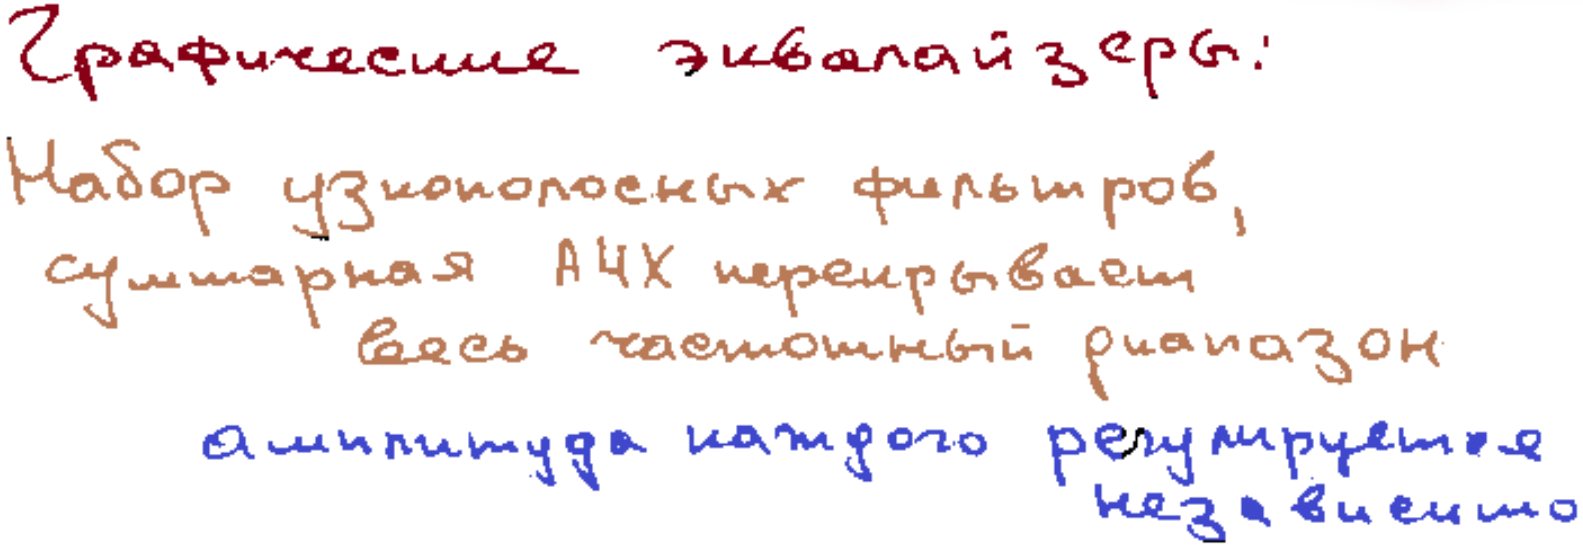 Графические эквалайзеры:
Набор узкополосных фильтров,
суммарная АЧХ перекрывает
весь частотный диапазон
амплитуда каждого регулируется
независимо